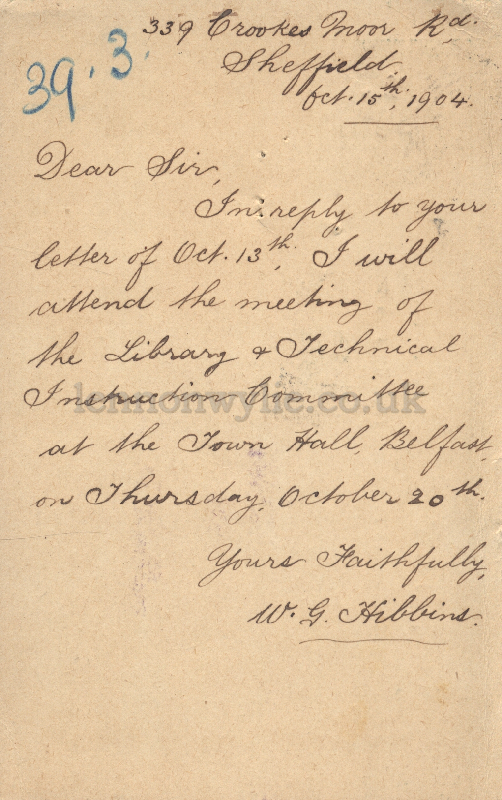 39.3.
339 Crookes Moor Rd.
Sheffield.
Oct. 15th, 1904.
Dear Sir,
In reply to your
letter of Oct. 13th, I will
attend the meeting of
the Library & Technical
Instruction Committee
lennonwylie.co.uk
at the Town Hall, Belfast,
on Thursday, October 20th.
Yours Faithfully,
W. G. Hibbins.